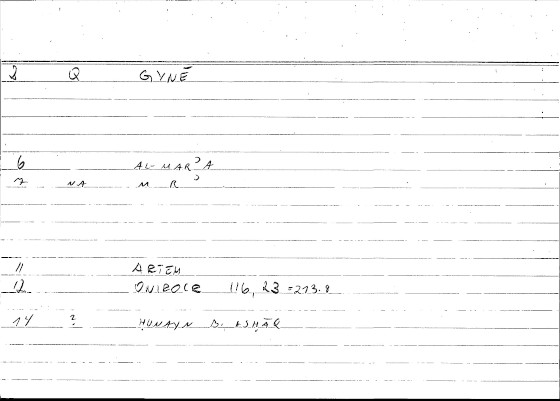 2 Q GYNĒ
6 AL-MARʾA
7 NA M R ʾ
11 ARTEM
12 ONIROCR 116, 23 =213.8
14 ? ḤUNAYN B. ISḤĀQ